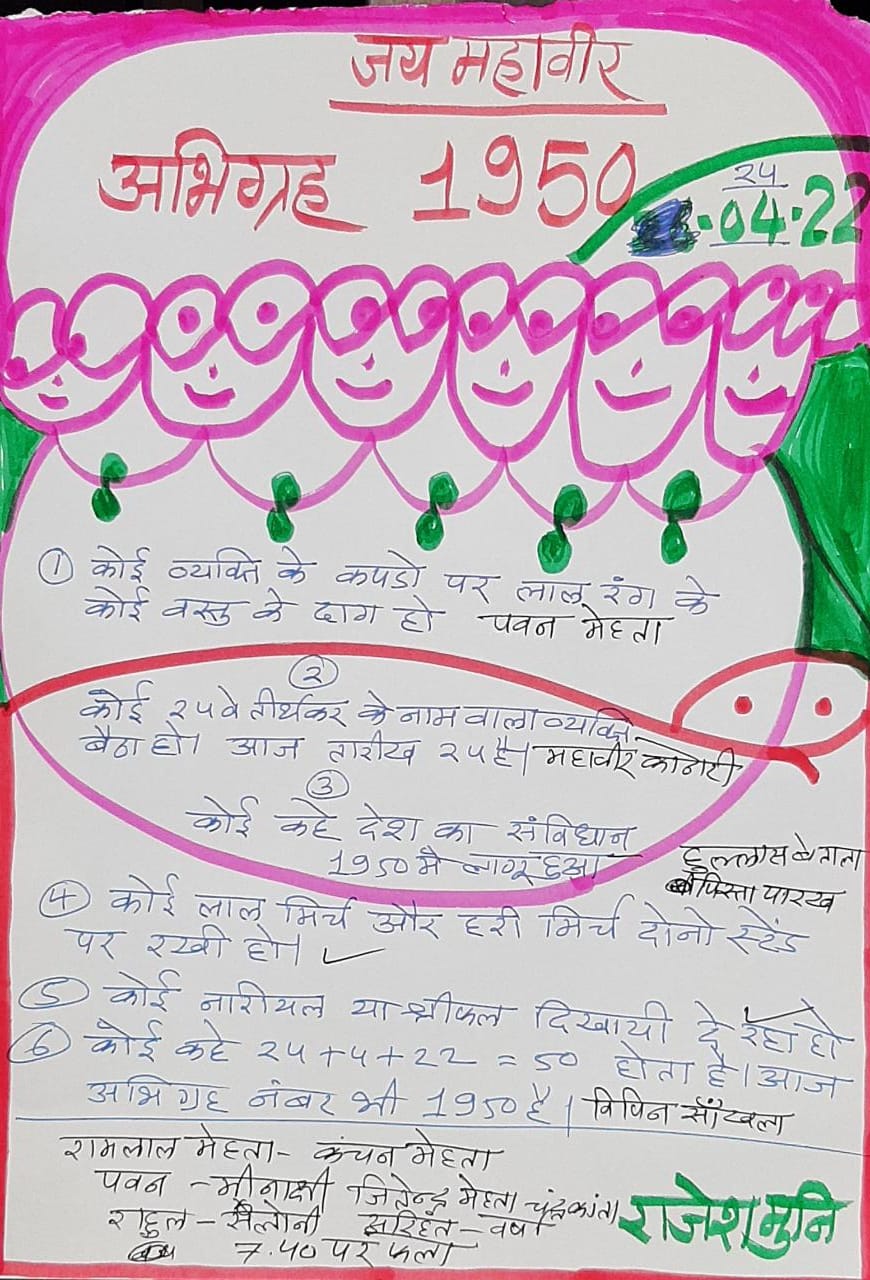 जय महावीर
अभिग्रह 1950
२५
.04.22
① कोई व्यक्ति के कपडो पर लाल रंग के
कोई वस्तु के दाग हो पवन मेहता
②
कोई २५वे तीर्थकर के नाम वाला व्यक्ति
बैठा हो। आज तारीख २५ है। महावीर
③
कोई कहे देश का संविधान
1950 मे लागू हुआ
हुल्लास
पिस्ता पारख
④ कोई लाल मिर्च और हरी मिर्च दोनो स्टेंड
पर रखी हो। ✓
⑤ कोई नारीयल या श्रीफल दिखायी दे रहा हो
⑥ कोई कहे २५+४+२२ = ५० होता है। आज
अभिग्रह नंबर भी 1950 है। विपिन साँखला
रामलाल मेहता - कंचन मेहता
पवन - मीनाक्षी जितेन्द्र मेहता चंद्रकांता
राहुल - सलोनी - वर्षा
7.५० पर फला
राजेश मुनि